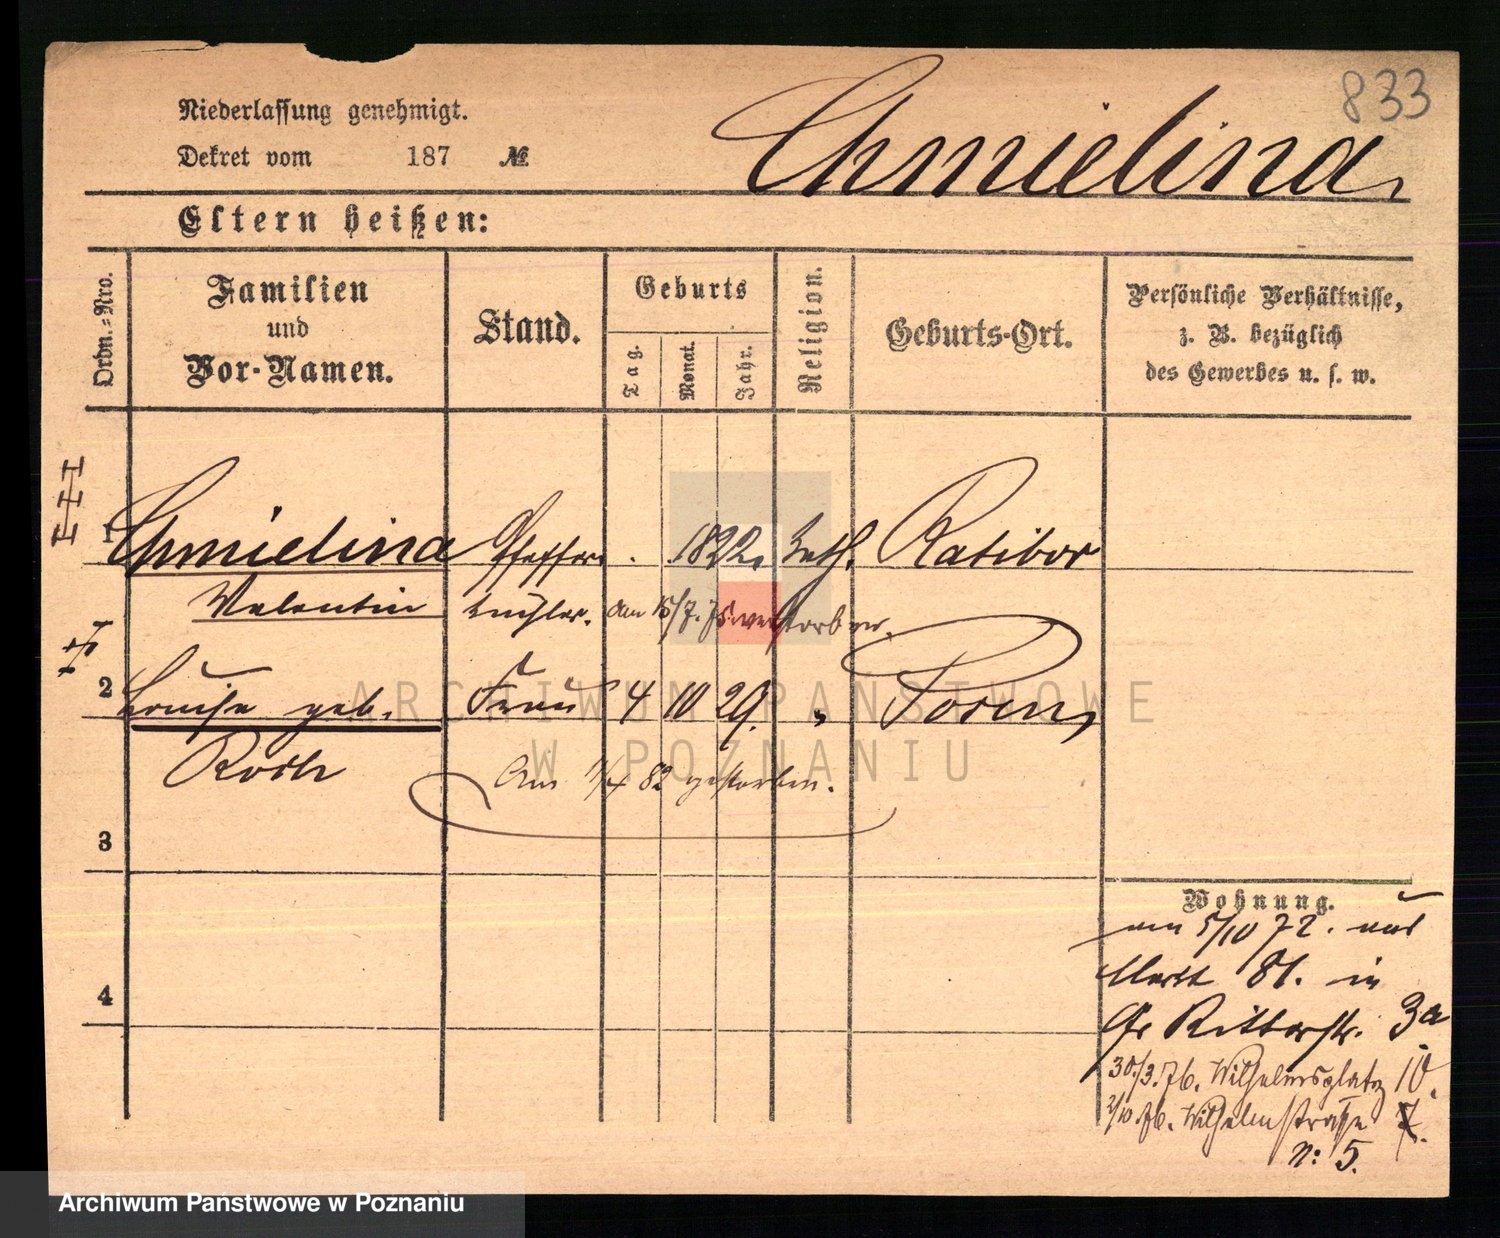 833
Chmielina
Niederlassung genehmigt.
Dekret vom 187 №
Eltern heißen:
Ordn.-Nro.
Familien
und
Vor-Namen.
Stand.
Geburts
Tag.
Monat.
Jahr.
Religion.
Geburts-Ort.
Persönliche Verhältnisse,
z. B. bezüglich
des Gewerbes u. s. w.
1 Chmielina Pfeffer 1822. kath. Ratibor
Valentin küchler. am 15/7. 75. verstorben.
2 Louise geb. Frau 4 10 29. " Posen
Roth
Am 1/4 82 gestorben.
3
4
Wohnung.
am 5/10 72. aus
Markt 81. in
Gr Ritterstr. 3a
30./3.76. Wilhelmsplatz 10.
2/10.76. Wilhelmstraße 7.
n: 5.
ARCHIWUM PAŃSTWOWE
W POZNANIU
Archiwum Państwowe w Poznaniu